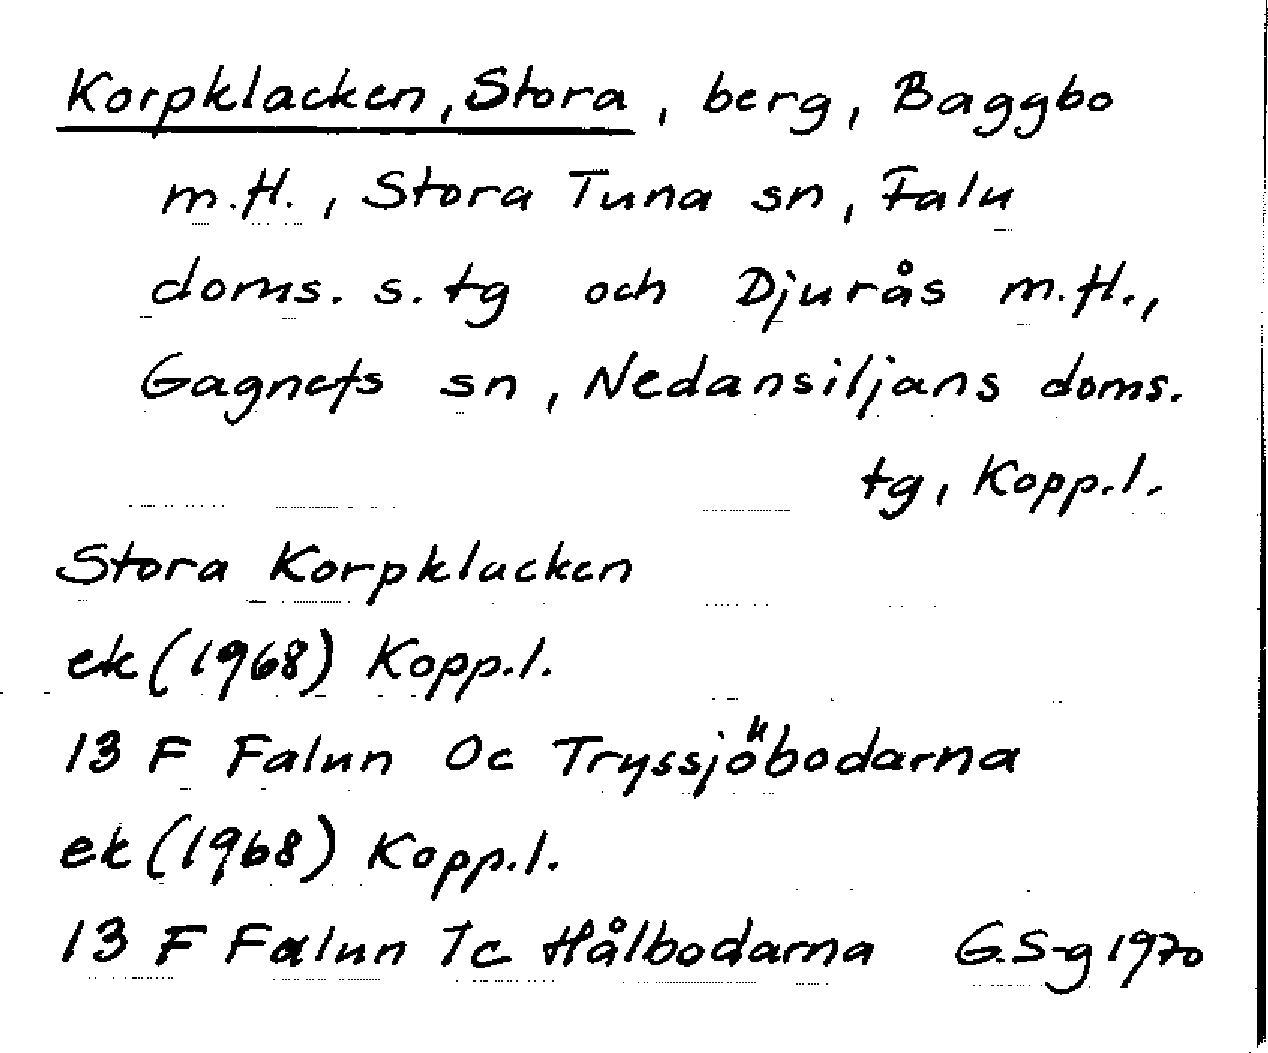 Korpklacken, Stora, berg, Baggbo
m.fl., Stora Tuna sn, Falu
doms. s. tg och Djurås m.fl.,
Gagnefs sn, Nedansiljans doms.
tg, Kopp.l.
Stora Korpklacken
ek (1968) Kopp.l.
13 F Falun 0c Tryssjöbodarna
ek (1968) Kopp.l.
13 F Falun 1c Hålbodarna G.S-g 1970